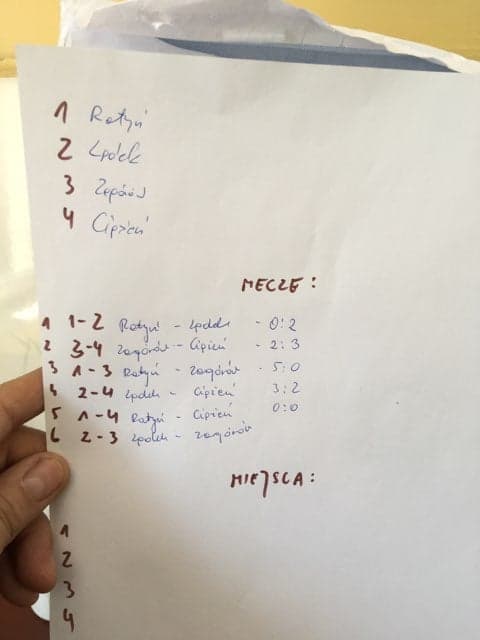 1 Ratyń
2 Lądek
3 Zagórów
4 Cipień
MECZE:
1 1-2 Ratyń - Lądek - 0:2
2 3-4 Zagórów - Cipień - 2:3
3 1-3 Ratyń - Zagórów - 5:0
4 2-4 Lądek - Cipień 3:2
5 1-4 Ratyń - Cipień 0:0
6 2-3 Lądek - Zagórów
MIEJSCA:
1
2
3
4